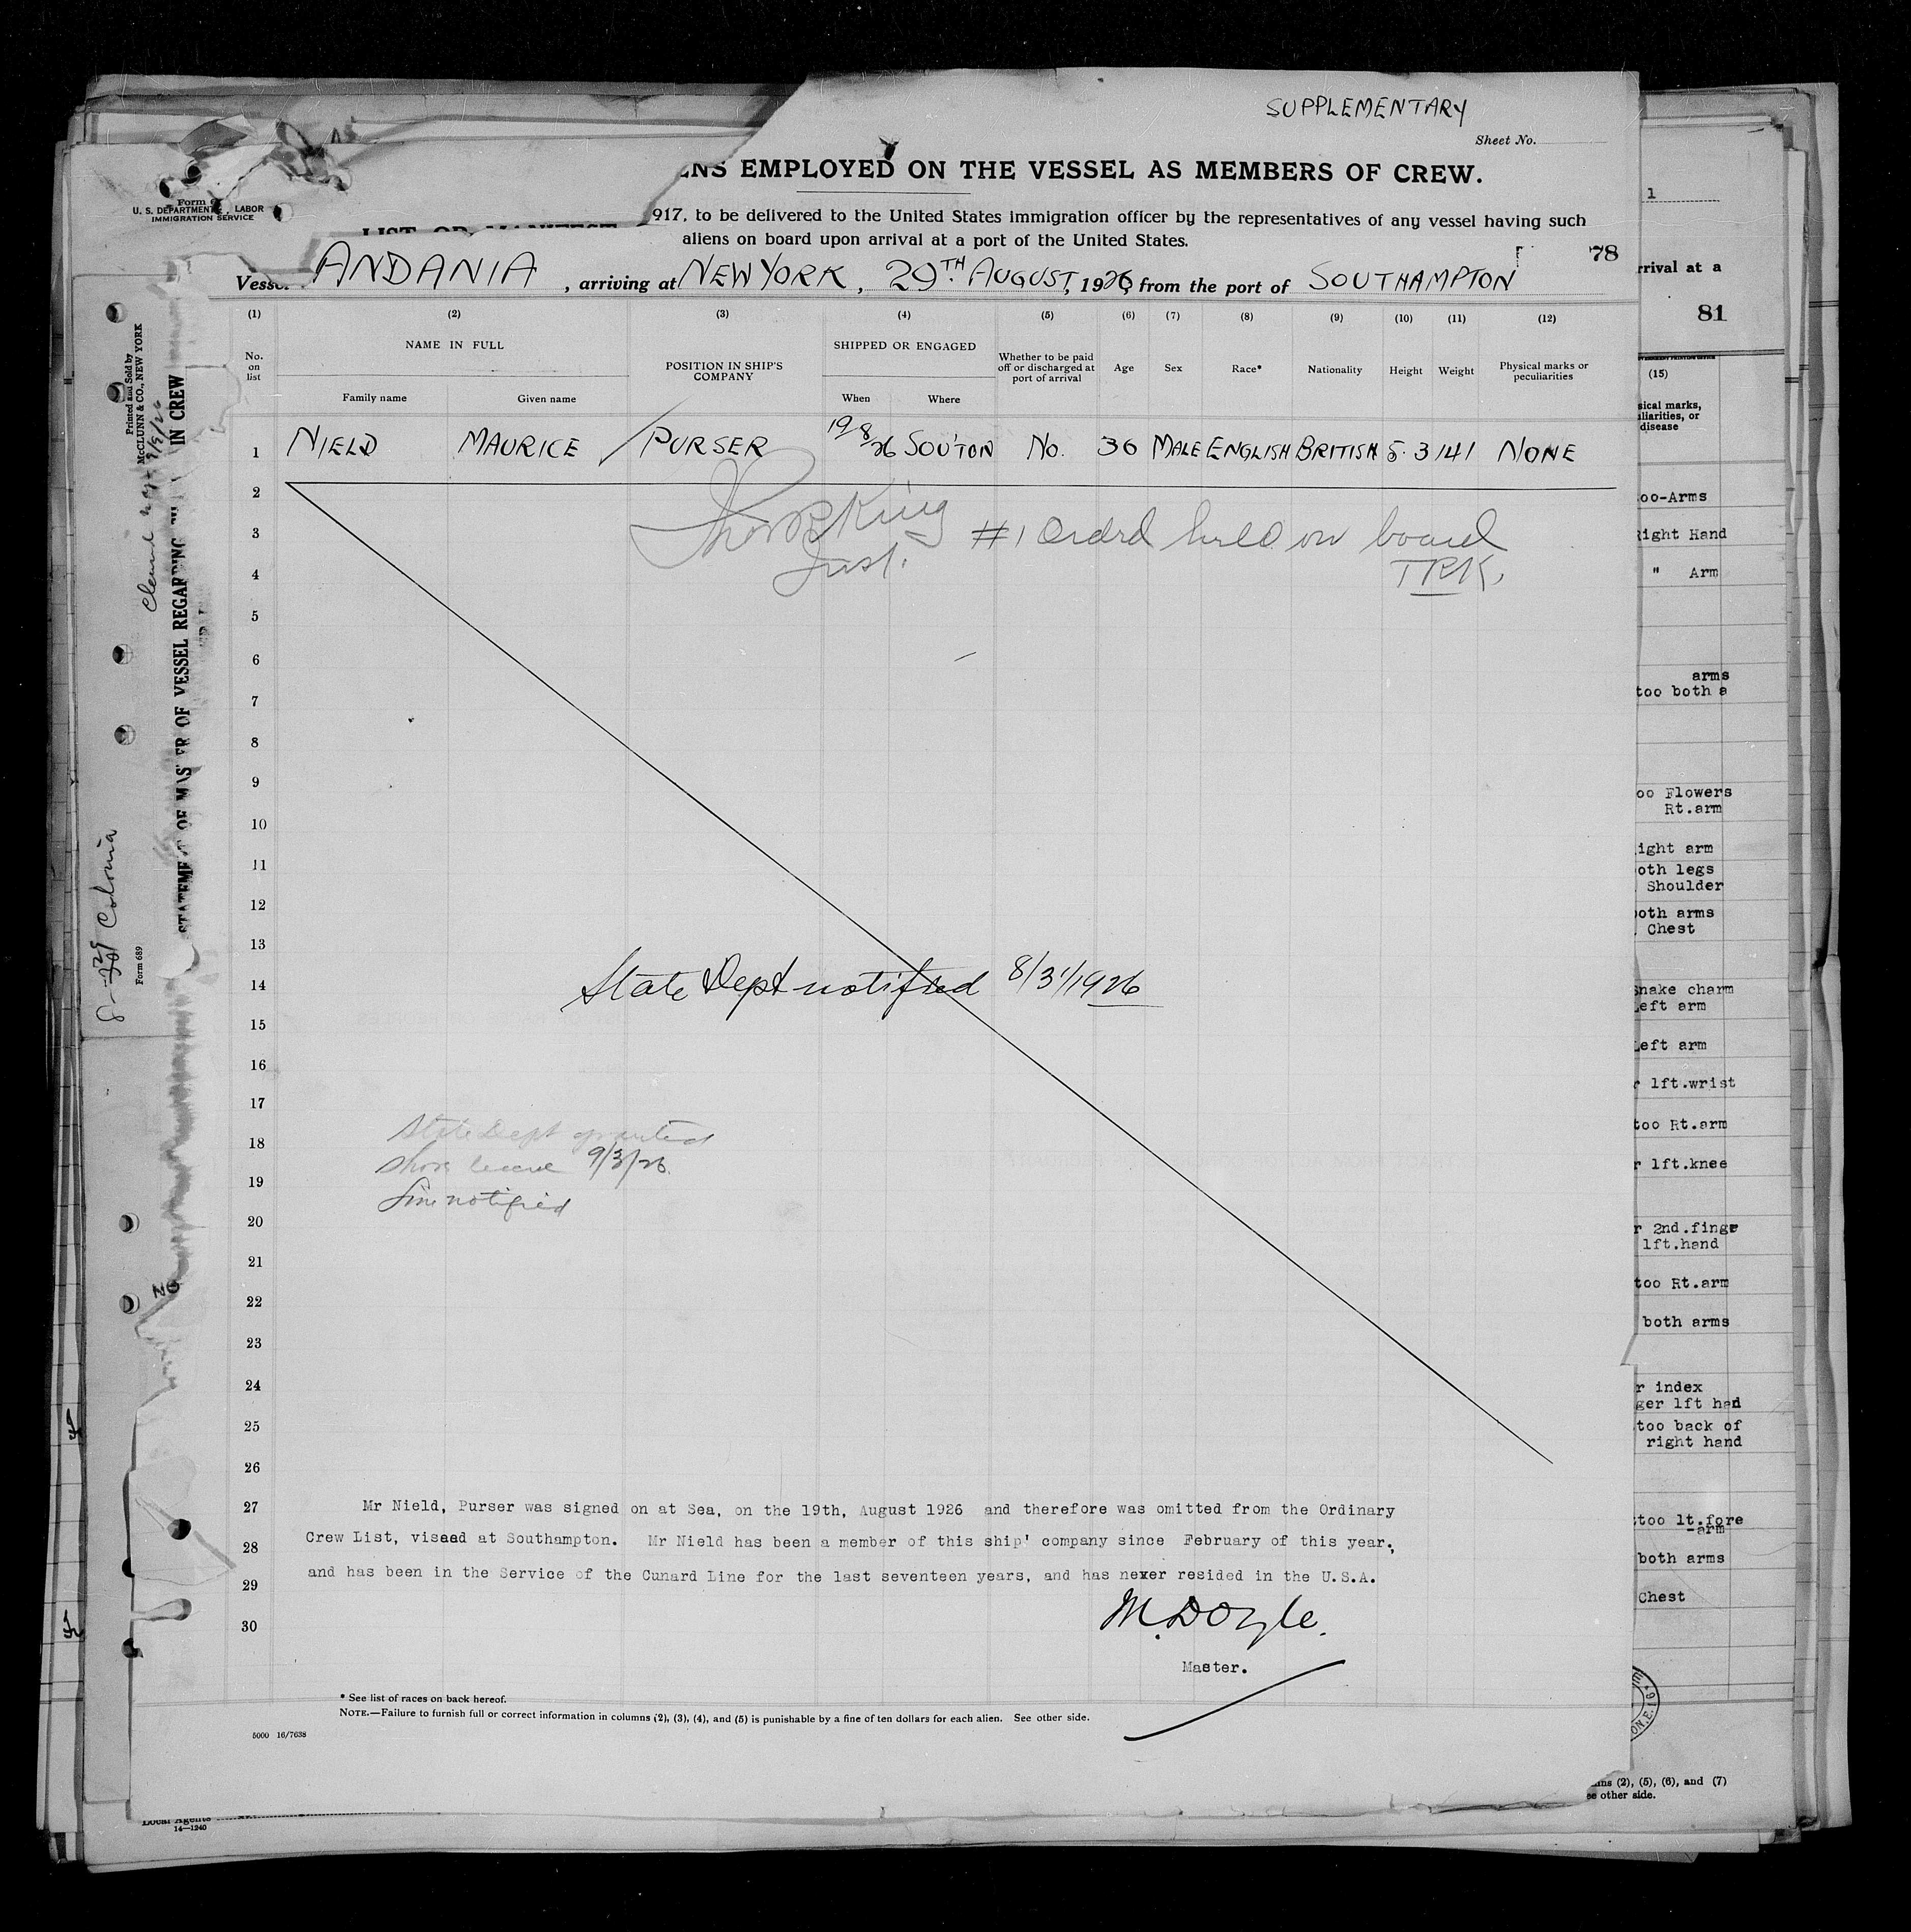 SUPPLEMENTARY
Sheet No.
ENS EMPLOYED ON THE VESSEL AS MEMBERS OF CREW.
U. S. DEPARTMENT LABOR
IMMIGRATION SERVICE
917, to be delivered to the United States immigration officer by the representatives of any vessel having such
aliens on board upon arrival at a port of the United States.
78
Vessel ANDANIA, arriving at NEW YORK, 29TH AUGUST, 1926, from the port of SOUTHAMPTON
(1) (2) (3) (4) (5) (6) (7) (8) (9) (10) (11) (12)
No. on list
NAME IN FULL
Family name Given name
POSITION IN SHIP'S COMPANY
SHIPPED OR ENGAGED
When Where
Whether to be paid off or discharged at port of arrival
Age Sex Race* Nationality Height Weight
Physical marks or peculiarities
1 NIELD MAURICE PURSER 19/8/26 SOU'TON No. 36 MALE ENGLISH BRITISH 5.3 141 NONE
2
Thos R King
3 #1 Ordrd held on board
Inst.
TRK.
4
5
6
7
8
9
10
11
12
13
14 State Dept notified 8/31/1926
15
16
17
18 State Dept granted
shore leave 9/3/26.
19
Line notified
20
21
22
23
24
25
26
27 Mr Nield, Purser was signed on at Sea, on the 19th, August 1926 and therefore was omitted from the Ordinary
28 Crew List, visaed at Southampton. Mr Nield has been a member of this ship' company since February of this year.,
29 and has been in the Service of the Cunard Line for the last seventeen years, and has never resided in the U.S.A.
30 M. Doyle.
Master.
* See list of races on back hereof.
NOTE.—Failure to furnish full or correct information in columns (2), (3), (4), and (5) is punishable by a fine of ten dollars for each alien. See other side.
5000 16/7638
Local Agents
14—1240
Printed and Sold by
McCLUNN & CO., NEW YORK
OF VESSEL REGARDING
IN CREW
Form 689
Colonia
1
rrival at a
81
(15)
sical marks,
uliarities, or
disease
oo-Arms
Right Hand
" Arm
arms
too both a
oo Flowers
Rt.arm
ight arm
oth legs
Shoulder
both arms
Chest
snake charm
Left arm
Left arm
r lft.wrist
too Rt.arm
r lft.knee
r 2nd.finge
lft.hand
too Rt.arm
both arms
r index
ger lft had
too back of
right hand
too lt.fore
-arm
both arms
Chest
ns (2), (5), (6), and (7)
ee other side.